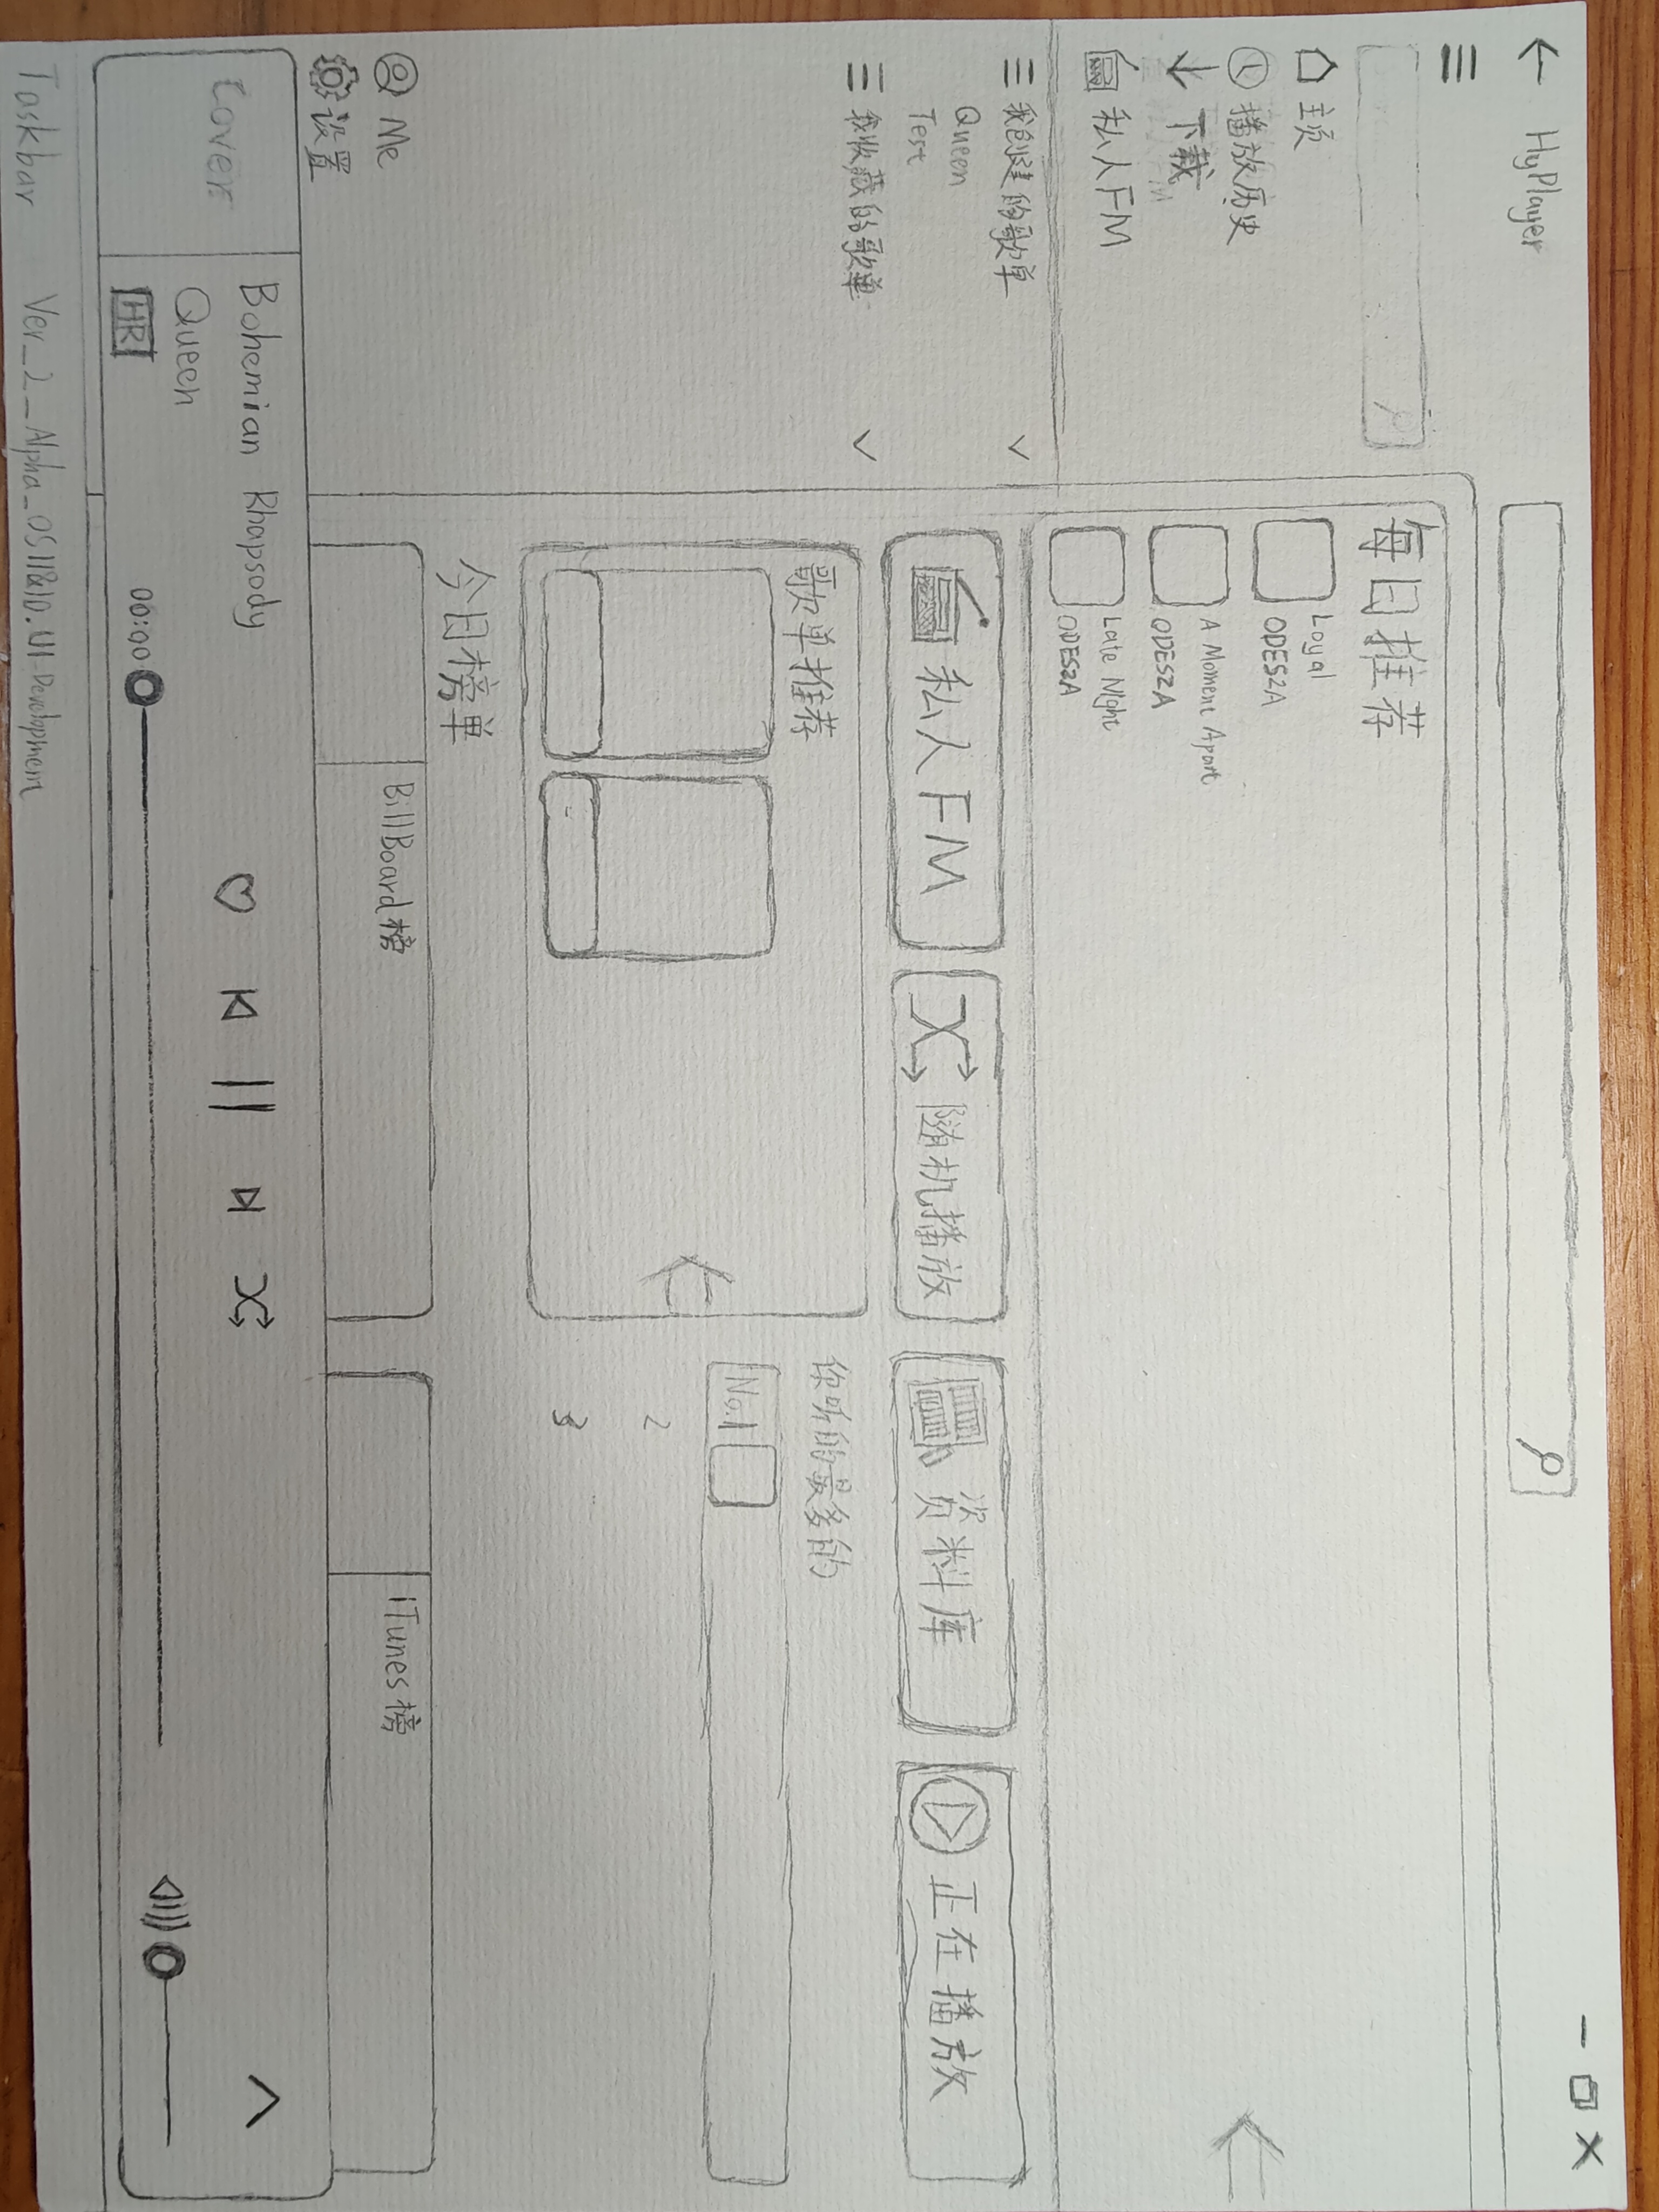 HyPlayer
主页
播放历史
下载
私人FM
私人FM
我创建的歌单
Queen
Test
我收藏的歌单
Me
设置
每日推荐
Loyal
ODESZA
A Moment Apart
ODESZA
Late NIght
ODESZA
私人FM
随机播放
资料库
正在播放
歌单推荐
你听的最多的
No.1
2
3
今日榜单
BillBoard榜
iTunes榜
Cover
Bohemian Rhapsody
Queen
HR
00:00
Taskbar
Ver_2_Alpha_OS11&10.UI-Development